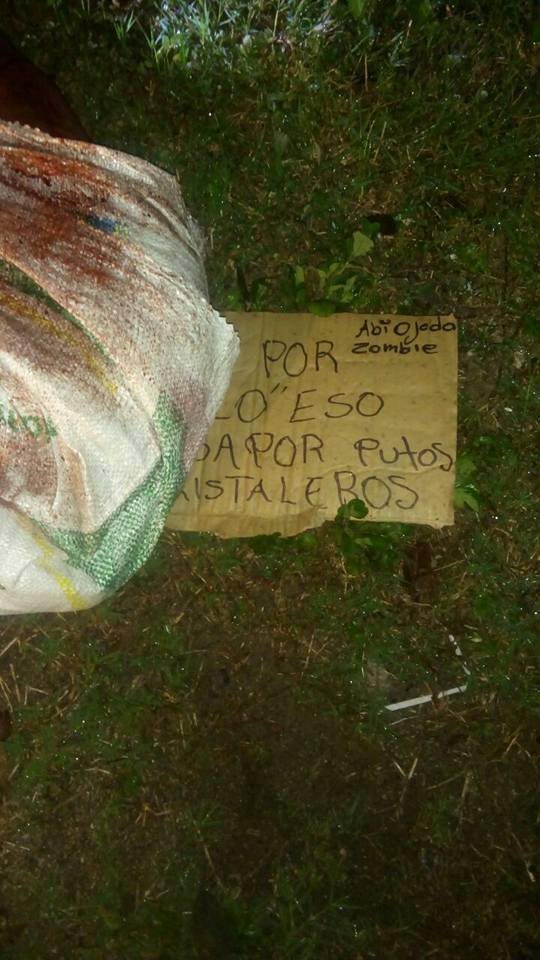 Abi Ojeda
Zombie
POR
LO" ESO
SA POR PUTOS
RISTALEROS